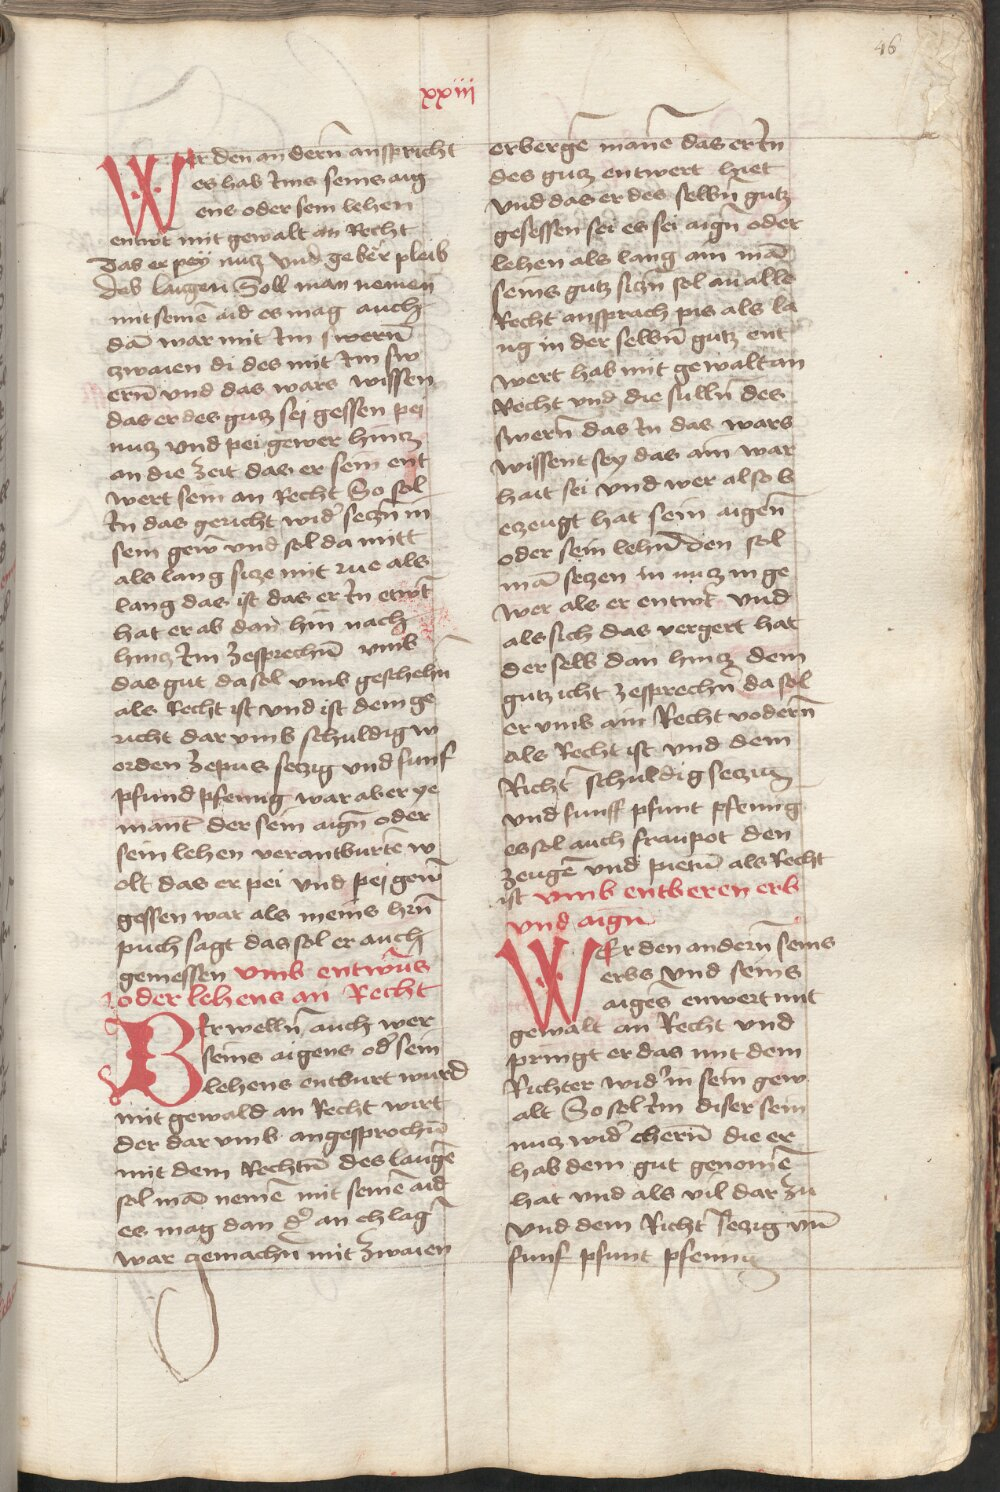 46
xxiii
Wer den an dern̄ anspricht
er hab Jms seins aig
ens oder sein lehen
entwt̄ mit gewalt an Recht
Das er pey nutz vnd geber pleib
des laugen Soll man nemen
mit seinē aid es mag auch
dā war mit Jm swern̄
zwaien di des mit Jm sw
ern̄ vnd das wars wissen
das er des gutz sei gessen pei
nutz vnd pei gewer hintz
an die zeit das er sein ent
wert sein an Recht So sol
Jn das gericht wid' seczn̄ in
sein gew̄ vnd sol da mitt
als lang sicze mit rue als
lang das ist das er Jn etwt̄
hat er ab dan̄ hin nach
hintz Jm zesprechn̄ vmb
das gut da sol vmb geschehn̄
als Recht ist vnd ist dem ge
richt dar vmb schuldig w
orden zepus seczig vnd funf
pfund pfenig war aber ye
mant der sein aign̄ oder
sein lehen verantburtē w
olt das er pei vnd pei gew̄
gessen war als meins hrn̄
puch sagt das sol er auch
geniessen vmb entwūs
oder lehens an Recht
Er welln̄ auch wer
seins aigens od' sein
lehens entburt wurd
mit gewald an Recht wirt
der dar vmb angesprochn̄
mit dem Rechtn̄ des laugē
sol mā nemē mit seinē aid
es mag dan d' an chlag
war gemachn̄ mit zwaien
erbergē manē das er Jn
des gutz entwert hiet
vnd das er des selbn̄ gutz
gesessen sei es sei aign̄ oder
lehen als lang ain mā
seins gutz siczn̄ sol an alle
Recht ansprach pis als la
ng in der selbn̄ gutz ent
wert hab mit gewalt an
Recht vnd die sulln̄ des
swern̄ das Jn das wars
wissent sey das ain war
hait sei vnd wer also b
ezeugt hat sein aigen̄
oder sein lehn̄ den sol
mā seczen in nutz in ge
wer als er entwt̄ vnd
als sich das vergert hat
der selb dan hintz dem
gutz icht zesprechn̄ da sol
er vmb ain Recht vodern̄
als Recht ist vnd dem
Richt' schuldig seczig
vnd funff pfunt pfenig
es sol auch fraupot den
zeugē vnd pietn̄ als Recht
ist vmb entberen erb
vnd aign̄
Wer den andern̄ seins
erbs vnd seins
aigēs entwert mit
gewalt an Recht vnd
pringt er das mit dem
Richter wid' in sein gew
alt So sol Jm diser sein
nutz wid' chern̄ die er
hab dem gut genomē
hat vnd als vil dar zu
vnd dem Richt' seczig vn̄
funf pfunt pfennig